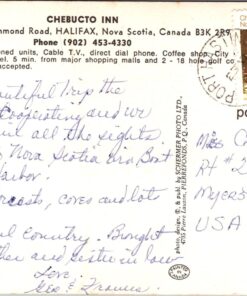 CHEBUCTO INN
mmond Road, HALIFAX, Nova Scotia, Canada B3K 2R9
Phone (902) 453-4330
oned units, Cable T.V., direct dial phone. Coffee shop, City
tel. 5 min. from major shopping malls and 2 - 18 hole golf co
autiful Trip the
Cooperating and we
all the sights
Nova Scotia and Boat
arbor.
coves and lots
ul Country. Brought
ther and sister in law
Love,
Geo & Frances
photo, design, T. & pub. by
SCHERMER PHOTO LTD.
4795 Pierre Lauzon, PIERREFONDS, P.Q. Canada
POSTAL
pos
Miss C
Rt # 2
Myers
USA